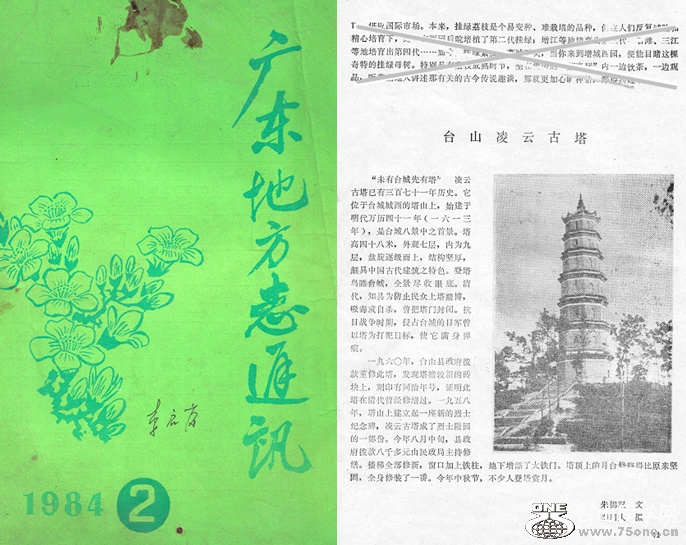 广东地方志通讯
1984 2
市场。本来，挂绿荔枝是个易变种、难栽培的品种，
精心培育下，
等地培育出第四代……
奇特的挂绿母树。
台山凌云古塔
“未有台城先有塔”　凌云
古塔已有三百七十一年历史。它
位于台城城西的塔山上，始建于
明代万历四十一年（一六一三
年），是台城八景中之首景。塔
高四十八米，外观七层，内为九
层，盘旋逐级而上，结构坚厚，
颇具中国古代建筑之特色。登塔
鸟瞰台城，全景尽收眼底。清
代，知县为防止民众上塔赌博，
吸毒或自杀，曾把塔门封闭。抗
日战争时期，侵占台城的日军曾
以塔为打炮目标，使它满身弹
痕。
一九六〇年，台山县政府拨
款重修此塔，发现塔檐较新的砖
块上，刻印有同治年号，证明此
塔在清代曾经修缮过。一九五八
年，塔山上建立起一座新的烈士
纪念碑，凌云古塔成了烈士陵园
的一部份。今年八月中旬，县政
府拨款八千多元由民政局主持修
缮。楼梯全部修新，窗口加上铁柱，地下增添了大铁门。塔顶上的月台得比原来坚
固，全身修装了一番。今年中秋节，不少人登塔赏月。
文
摄
ONE
www.75one.cn